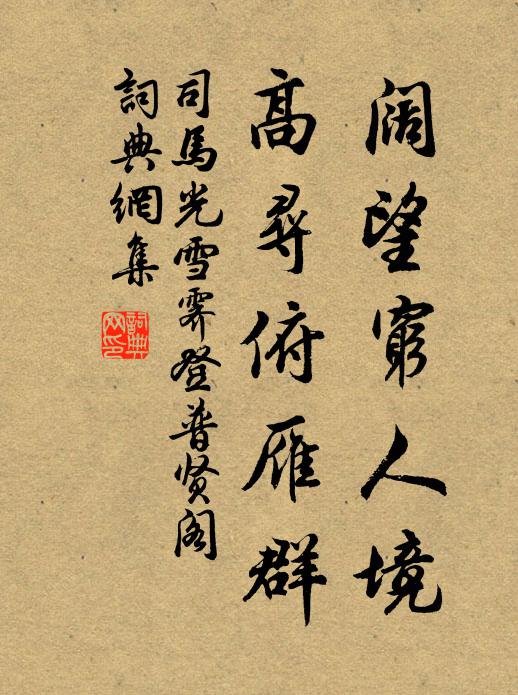 阔望窮人境
高尋俯雁群
司馬光雪霽登普贤阁
詞典網集
詞典
网印